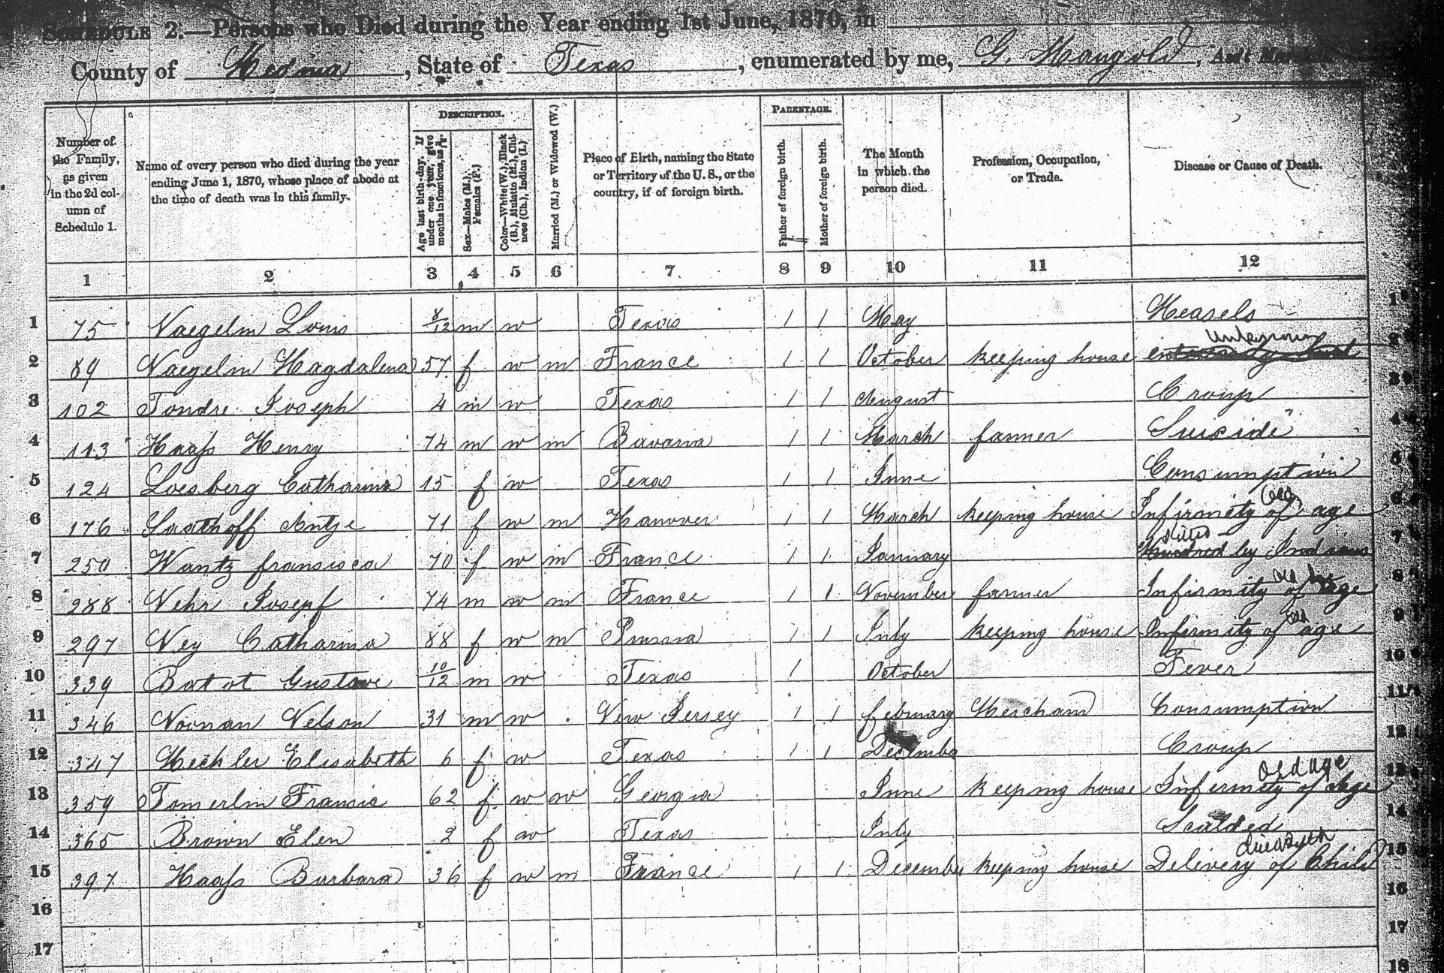 SCHEDULE 2.—Persons who Died during the Year ending 1st June, 1870, in
County of Medina, State of Texas, enumerated by me, G. Mangold, Ass't
Number of the Family, as given in the 2d column of Schedule 1.
Name of every person who died during the year ending June 1, 1870, whose place of abode at the time of death was in this family.
DESCRIPTION.
Age last birth-day. If under one year, give months in fractions, as
Sex—Males (M.), Females (F.)
Color—White (W.), Black (B.), Mulatto (M.), Chinese (Ch.), Indian (I.)
Married (M.) or Widowed (W.)
Place of Birth, naming the State or Territory of the U. S., or the country, if of foreign birth.
PARENTAGE.
Father of foreign birth.
Mother of foreign birth.
The Month in which the person died.
Profession, Occupation, or Trade.
Disease or Cause of Death.
1 2 3 4 5 6 7 8 9 10 11 12
1 75 Naegelin Louis 8/12 m w Texas 1 1 May Measels 1
2 89 Naegelin Magdalena 57 f w m France 1 1 October keeping house unknown 2
3 102 Tondre Joseph 4 m w Texas 1 1 August Croup 3
4 113 Haaſs Henry 74 m w m Bavaria 1 1 March farmer Suicide 4
5 124 Loesberg Catharina 15 f w Texas 1 1 June Consumption 5
6 176 Saathoff Antje 71 f w m Hanover 1 1 March keeping house Infirmity of old age 6
7 250 Wantz fransisca 70 f w m France 1 1 January Killed by Indians 7
8 288 Nehr Josepf 74 m w m France 1 1 November farmer Infirmity of age 8
9 297 Ney Catharina 88 f w m Prussia 1 1 July keeping house Infirmity of old age 9
10 339 Batot Gustave 10/12 m w Texas 1 October Fever 10
11 346 Noonan Nelson 31 m w New Jersey 1 1 february Merchand Consumption 11
12 347 Mechler Elisabeth 6 f w Texas 1 1 December Croup 12
13 359 Tomerlin Francis 62 f w w Georgia June keeping house Infirmity of Age Old age 13
14 365 Brown Elen 2 f w Texas July Scalded 14
15 397 Haaſs Barbara 36 f w m France 1 1 December keeping house Delivery of Child 15
16 16
17 17
18